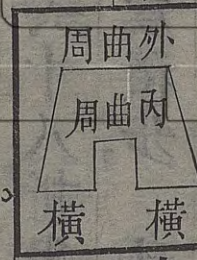 外曲周
內曲周
橫 橫